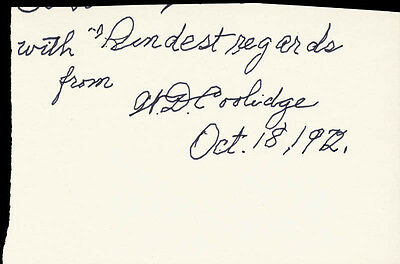 with Kindest regards
from
W.D. Coolidge
Oct. 18, 1972.